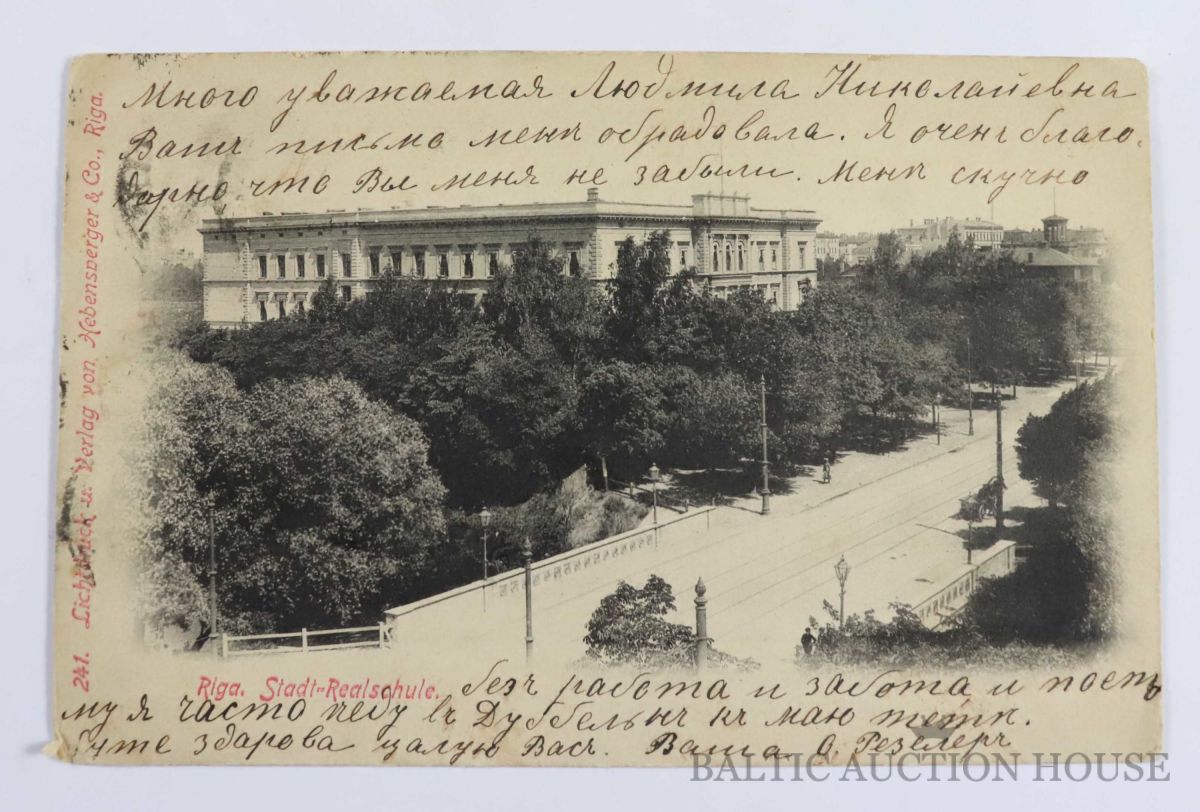 Много уважаемая Людмила Николайевна
Вашъ письмо менѣ обрадовала. Я оченъ благо-
дарно что Вы меня не забыли. Менѣ скучно
241. Lichtdruck u. Verlag von Hebensperger & Co., Riga.
Riga. Stadt-Realschule.
безъ работа и забота и поеть
му я часто ѣеду въ Дуббельнъ къ маю тетк.
буте здарова цалую Васъ. Ваша О. Резелеръ
BALTIC AUCTION HOUSE